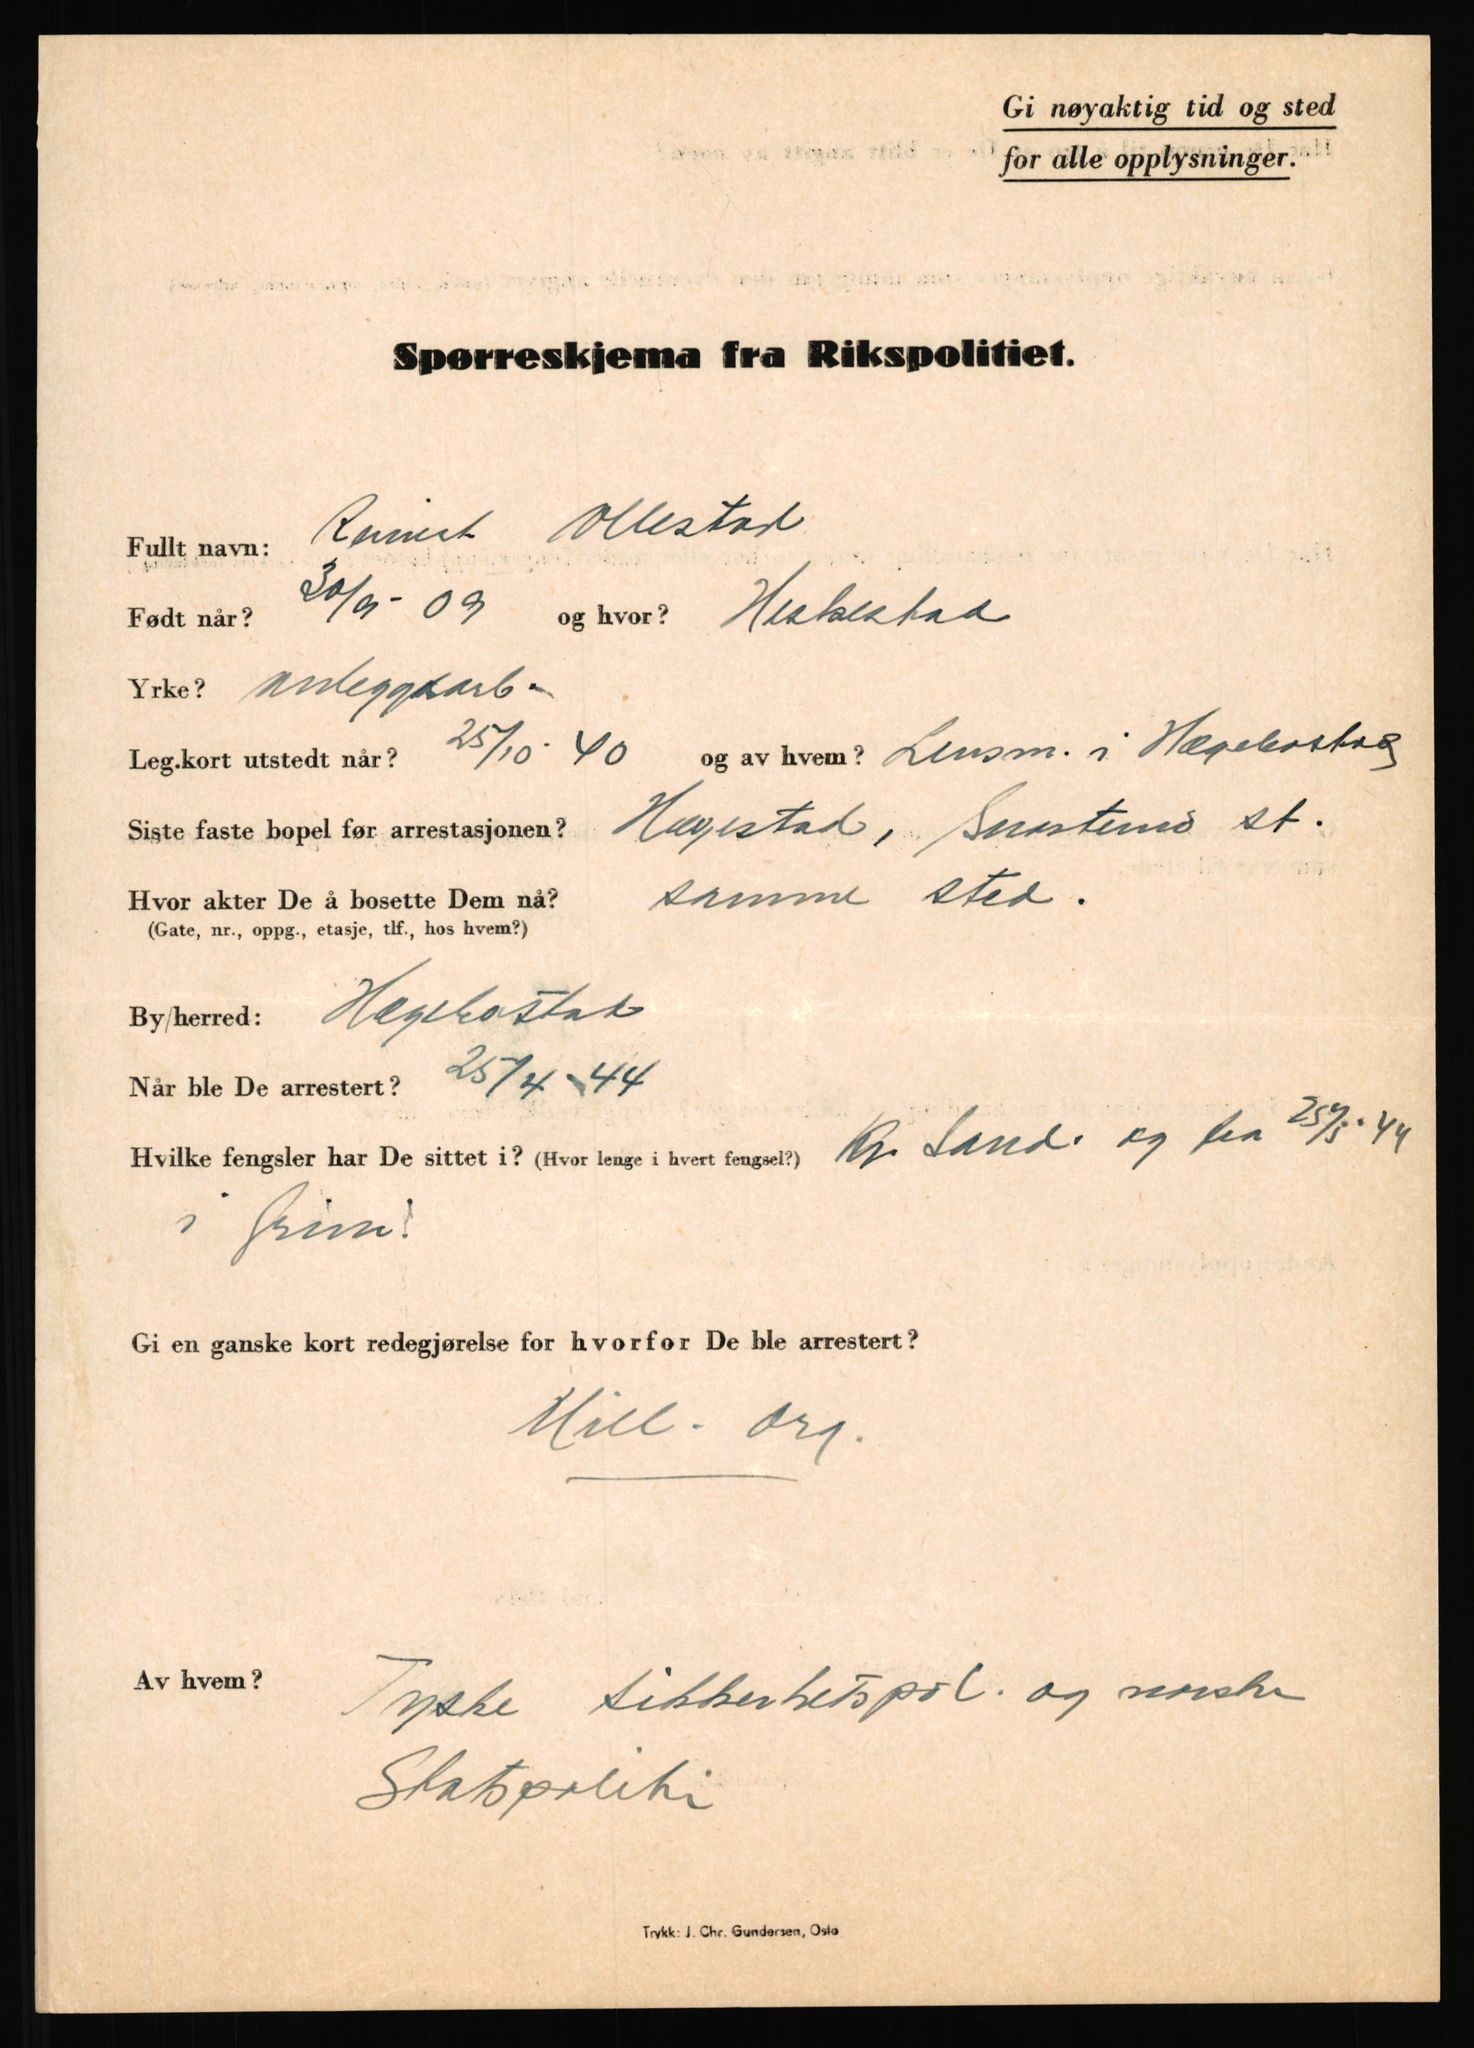 Gi nøyaktig tid og sted
for alle opplysninger.
Spørreskjema fra Rikspolitiet.
Fullt navn: Reinert Ollestad
Født når? 30/9-09 og hvor? Heskestad
Yrke? anleggsarb.
Leg.kort utstedt når? 25/10-40 og av hvem? Lensm. i Hægebostad
Siste faste bopel før arrestasjonen? Hægestad, Snartemo st.
Hvor akter De å bosette Dem nå? samme sted.
(Gate, nr., oppg., etasje, tlf., hos hvem?)
By/herred: Hægebostad
Når ble De arrestert? 25/4-44
Hvilke fengsler har De sittet i? (Hvor lenge i hvert fengsel?) Kr. Sand. og fra 25/5-44
i Grini
Gi en ganske kort redegjørelse for hvorfor De ble arrestert?
Mill-org.
Av hvem? Tyske sikkerhetspol. og norske
Statspoliti
Trykk: J. Chr. Gundersen, Oslo